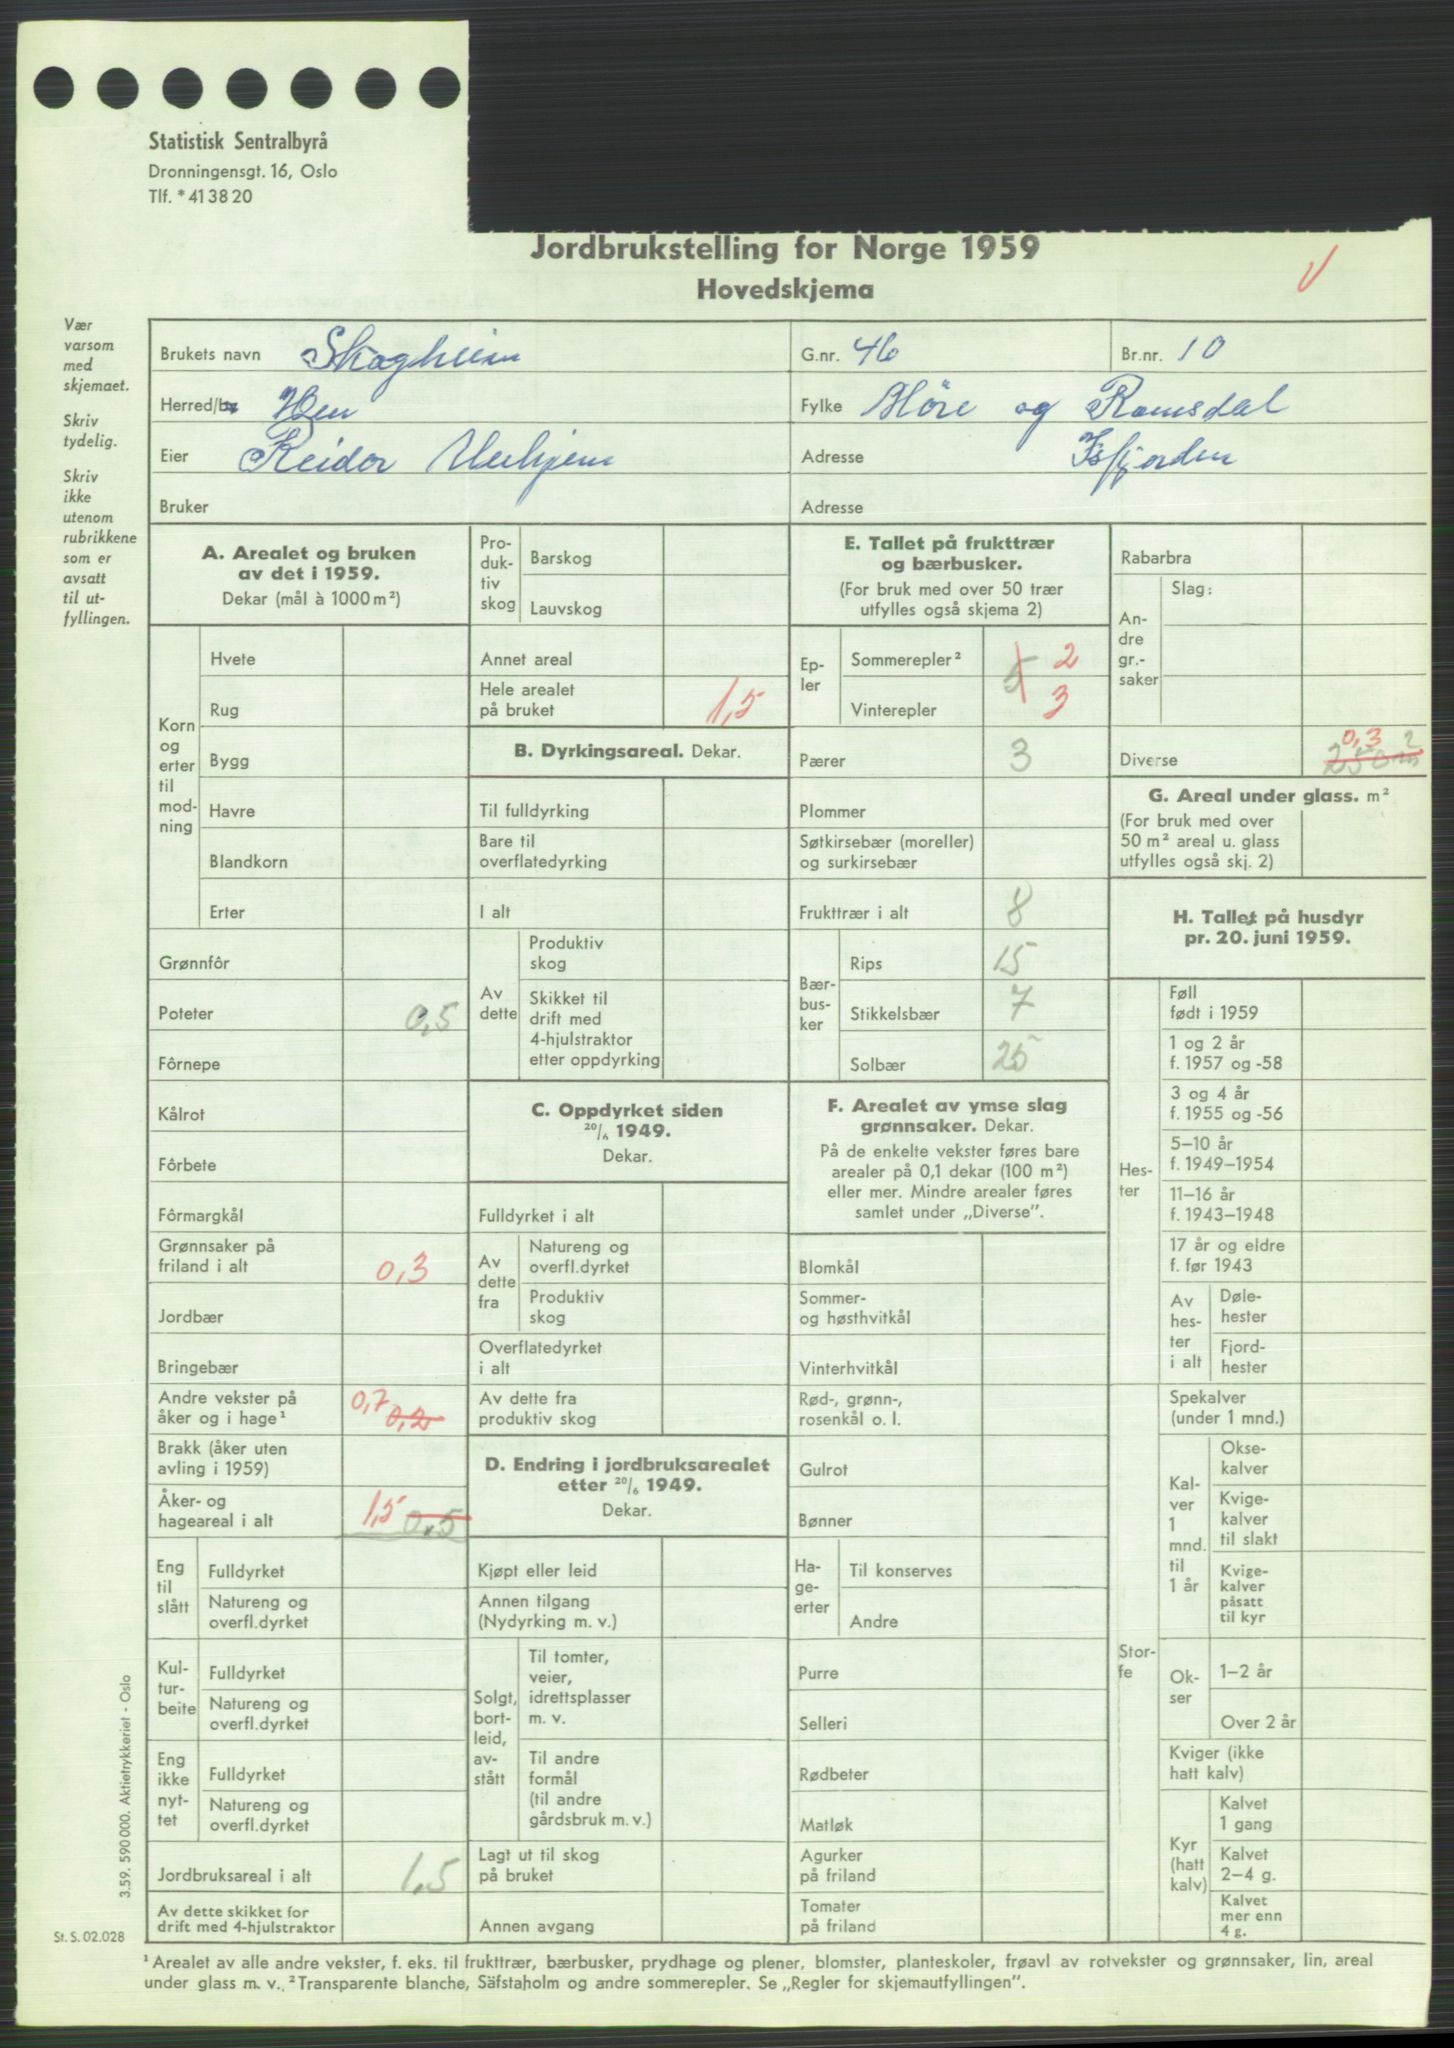 Statistisk Sentralbyrå
Dronningensgt. 16, Oslo
Tlf. * 41 38 20
Jordbrukstelling for Norge 1959
Hovedskjema
V
Vær
varsom
med
skjemaet.
Skriv
tydelig.
Skriv
ikke
utenom
rubrikkene
som er
avsatt
til ut-
fyllingen.
Brukets navn Skogheim
G.nr. 46
Br.nr. 10
Herred/by Hen
Fylke Möre og Romsdal
Eier Reidor
Adresse Isfjorden
Bruker
Adresse
A. Arealet og bruken
av det i 1959.
Dekar (mål à 1000 m²)
Korn
og
erter
til
mod-
ning
Hvete
Rug
Bygg
Havre
Blandkorn
Erter
Grønnfôr
Poteter 0,5
Fôrnepe
Kålrot
Fôrbete
Fôrmargkål
Grønnsaker på
friland i alt 0,3
Jordbær
Bringebær
Andre vekster på
åker og i hage¹ 0,7 0,2
Brakk (åker uten
avling i 1959)
Åker- og
hageareal i alt 1,5 0,5
Eng
til
slått
Fulldyrket
Natureng og
overfl.dyrket
Kul-
tur-
beite
Fulldyrket
Natureng og
overfl.dyrket
Eng
ikke
nyt-
tet
Fulldyrket
Natureng og
overfl.dyrket
Jordbruksareal i alt 1,5
Av dette skikket for
drift med 4-hjulstraktor
Pro-
duk-
tiv
skog
Barskog
Lauvskog
Annet areal
Hele arealet
på bruket 1,5
B. Dyrkingsareal. Dekar.
Til fulldyrking
Bare til
overflatedyrking
I alt
Av
dette
Produktiv
skog
Skikket til
drift med
4-hjulstraktor
etter oppdyrking
C. Oppdyrket siden
20/6 1949.
Dekar.
Fulldyrket i alt
Av
dette
fra
Natureng og
overfl.dyrket
Produktiv
skog
Overflatedyrket
i alt
Av dette fra
produktiv skog
D. Endring i jordbruksarealet
etter 20/6 1949.
Dekar.
Kjøpt eller leid
Annen tilgang
(Nydyrking m. v.)
Solgt,
bort-
leid,
av-
stått
Til tomter,
veier,
idrettsplasser
m. v.
Til andre
formål
(til andre
gårdsbruk m. v.)
Lagt ut til skog
på bruket
Annen avgang
E. Tallet på frukttrær
og bærbusker.
(For bruk med over 50 trær
utfylles også skjema 2)
Ep-
ler
Sommerepler² 2
5
Vinterepler 3
Pærer 3
Plommer
Søtkirsebær (moreller)
og surkirsebær
Frukttrær i alt 8
Bær-
bus-
ker
Rips 15
Stikkelsbær 7
Solbær 25
F. Arealet av ymse slag
grønnsaker. Dekar.
På de enkelte vekster føres bare
arealer på 0,1 dekar (100 m²)
eller mer. Mindre arealer føres
samlet under „Diverse”.
Blomkål
Sommer-
og høsthvitkål
Vinterhvitkål
Rød-, grønn-,
rosenkål o. l.
Gulrot
Bønner
Ha-
ge-
erter
Til konserves
Andre
Purre
Selleri
Rødbeter
Matløk
Agurker
på friland
Tomater
på friland
Rabarbra
An-
dre
gr.-
saker
Slag:
Diverse 0,3 250 m²
G. Areal under glass. m²
(For bruk med over
50 m² areal u. glass
utfylles også skj. 2)
H. Tallet på husdyr
pr. 20. juni 1959.
Hes-
ter
Føll
født i 1959
1 og 2 år
f. 1957 og -58
3 og 4 år
f. 1955 og -56
5–10 år
f. 1949–1954
11–16 år
f. 1943–1948
17 år og eldre
f. før 1943
Av
hes-
ter
i alt
Døle-
hester
Fjord-
hester
Stor-
fe
Spekalver
(under 1 mnd.)
Kal-
ver
1
mnd.
til
1 år
Okse-
kalver
Kvige-
kalver
til slakt
Kvige-
kalver
påsatt
til kyr
Ok-
ser
1–2 år
Over 2 år
Kviger (ikke
hatt kalv)
Kyr
(hatt
kalv)
Kalvet
1 gang
Kalvet
2–4 g.
Kalvet
mer enn
4 g.
3.59. 590 000. Aktietrykkeriet - Oslo
St. S. 02.028
¹ Arealet av alle andre vekster, f. eks. til frukttrær, bærbusker, prydhage og plener, blomster, planteskoler, frøavl av rotvekster og grønnsaker, lin, areal
under glass m. v. ² Transparente blanche, Säfstaholm og andre sommerepler. Se „Regler for skjemautfyllingen”.